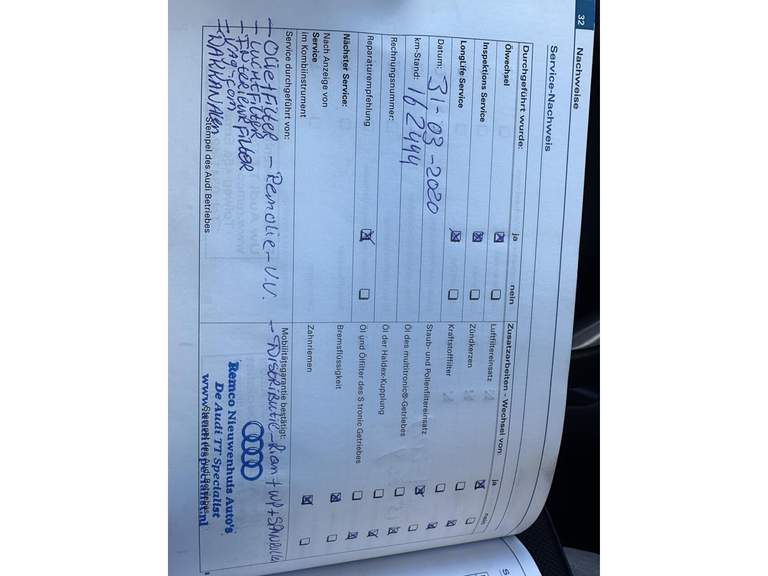 32
Nachweise
Service-Nachweis
Durchgeführt wurde:
ja
nein
Ölwechsel
Inspektions Service
LongLife Service
Datum: 31-03-2020
km-Stand: 162444
Rechnungsnummer:
Reparaturempfehlung
Nächster Service:
Nach Anzeige von
Service
im Kombiinstrument
Service durchgeführt von:
- Olie+Filter - Remolie - V.V.
- Luchtfilter
- Interieurfilter
Stempel des Audi Betriebes
Zusatzarbeiten - Wechsel von:
ja
nein
Luftfiltereinsatz
Zündkerzen
Kraftstofffilter
Staub- und Pollenfiltereinsatz
Öl des multitronic®-Getriebes
Öl der Haldex-Kupplung
Öl und Ölfilter des S tronic Getriebes
Bremsflüssigkeit
Zahnriemen
Mobilitätsgarantie bestätigt:
- Distributie-Riem + WP +
Remco Nieuwenhuis Auto's
De Audi TT Specialist
www.audittspecialist.nl
Stempel des Audi Betriebes